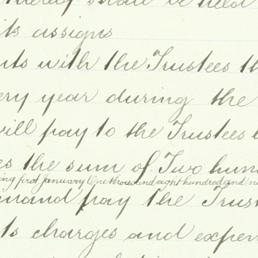 shall be held
its assigns
nts with the Trustees th
ery year during the
will pay to the Trustees
es the sum of Two hun
ing first January One thousand eight hundred and n
emand pay the Trust
ts charges and expen